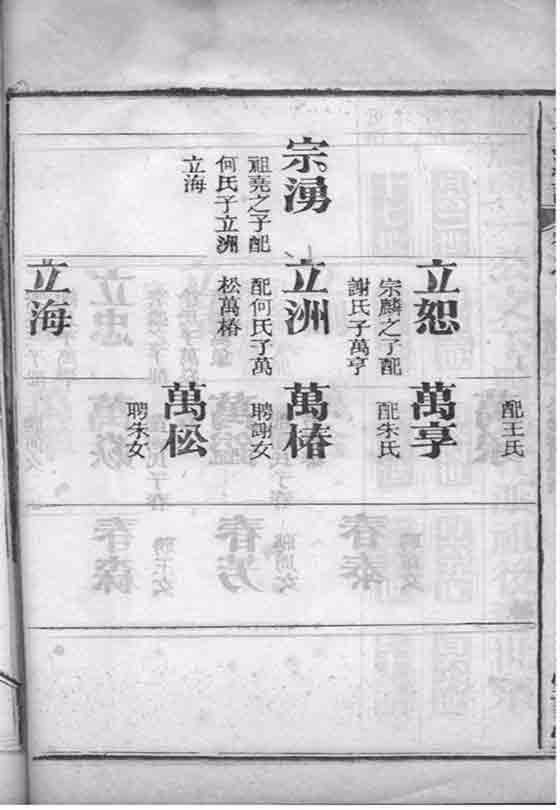 宗湧
祖堯之子配
何氏子立洲
立海
立恕
宗麟之子配
謝氏子萬亨
立洲
配何氏子萬
松萬椿
立海
配王氏
萬享
配朱氏
萬椿
聘謝女
萬松
聘朱女